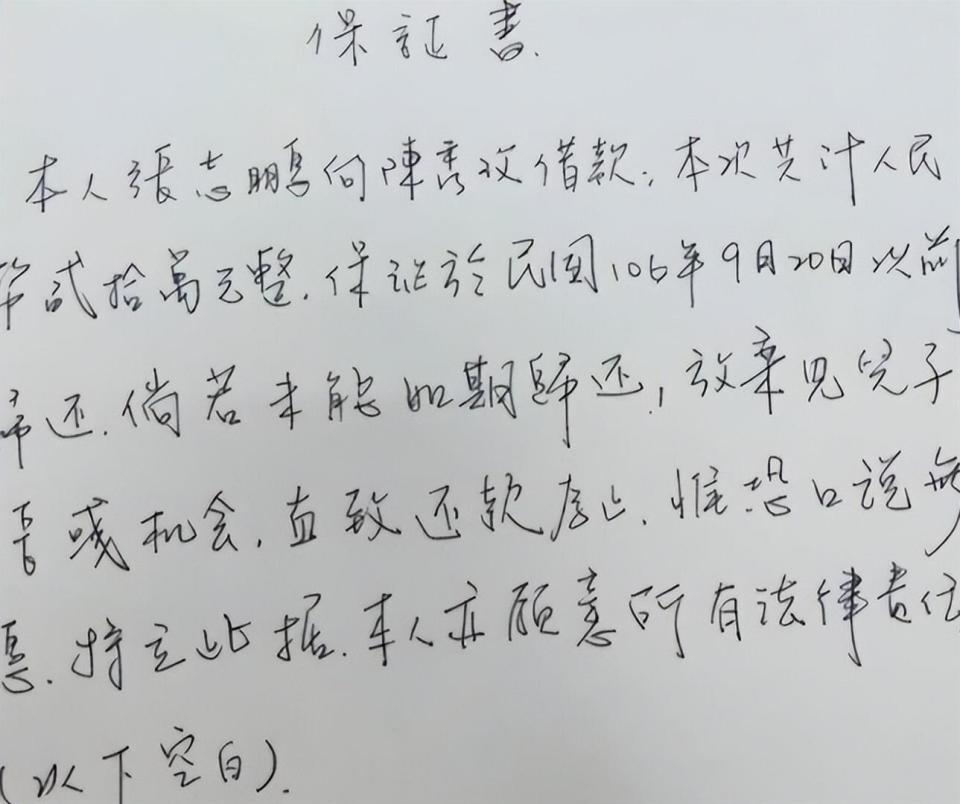 保証書.
本人張志鵬向陳秀玟借款,本次共计人民
币貳拾萬元整.保证於民国106年9月20日以前
帰还.倘若未能如期歸还,放棄見兒子
机会.直致还款為止.惟恐口说無
憑.特立此据.本人亦願意所有法律責任
(以下空白).